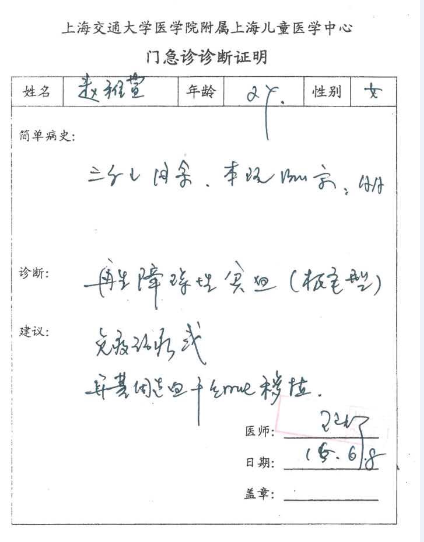 上海交通大学医学院附属上海儿童医学中心
门急诊诊断证明
姓名 赵雅萱 年龄 2Y. 性别 女
简单病史:
三个月
诊断: 再生障碍性贫血(极重型)
建议: 免疫治疗或
异基因造血干细胞移植.
医师:
日期: 15.6.8
盖章: